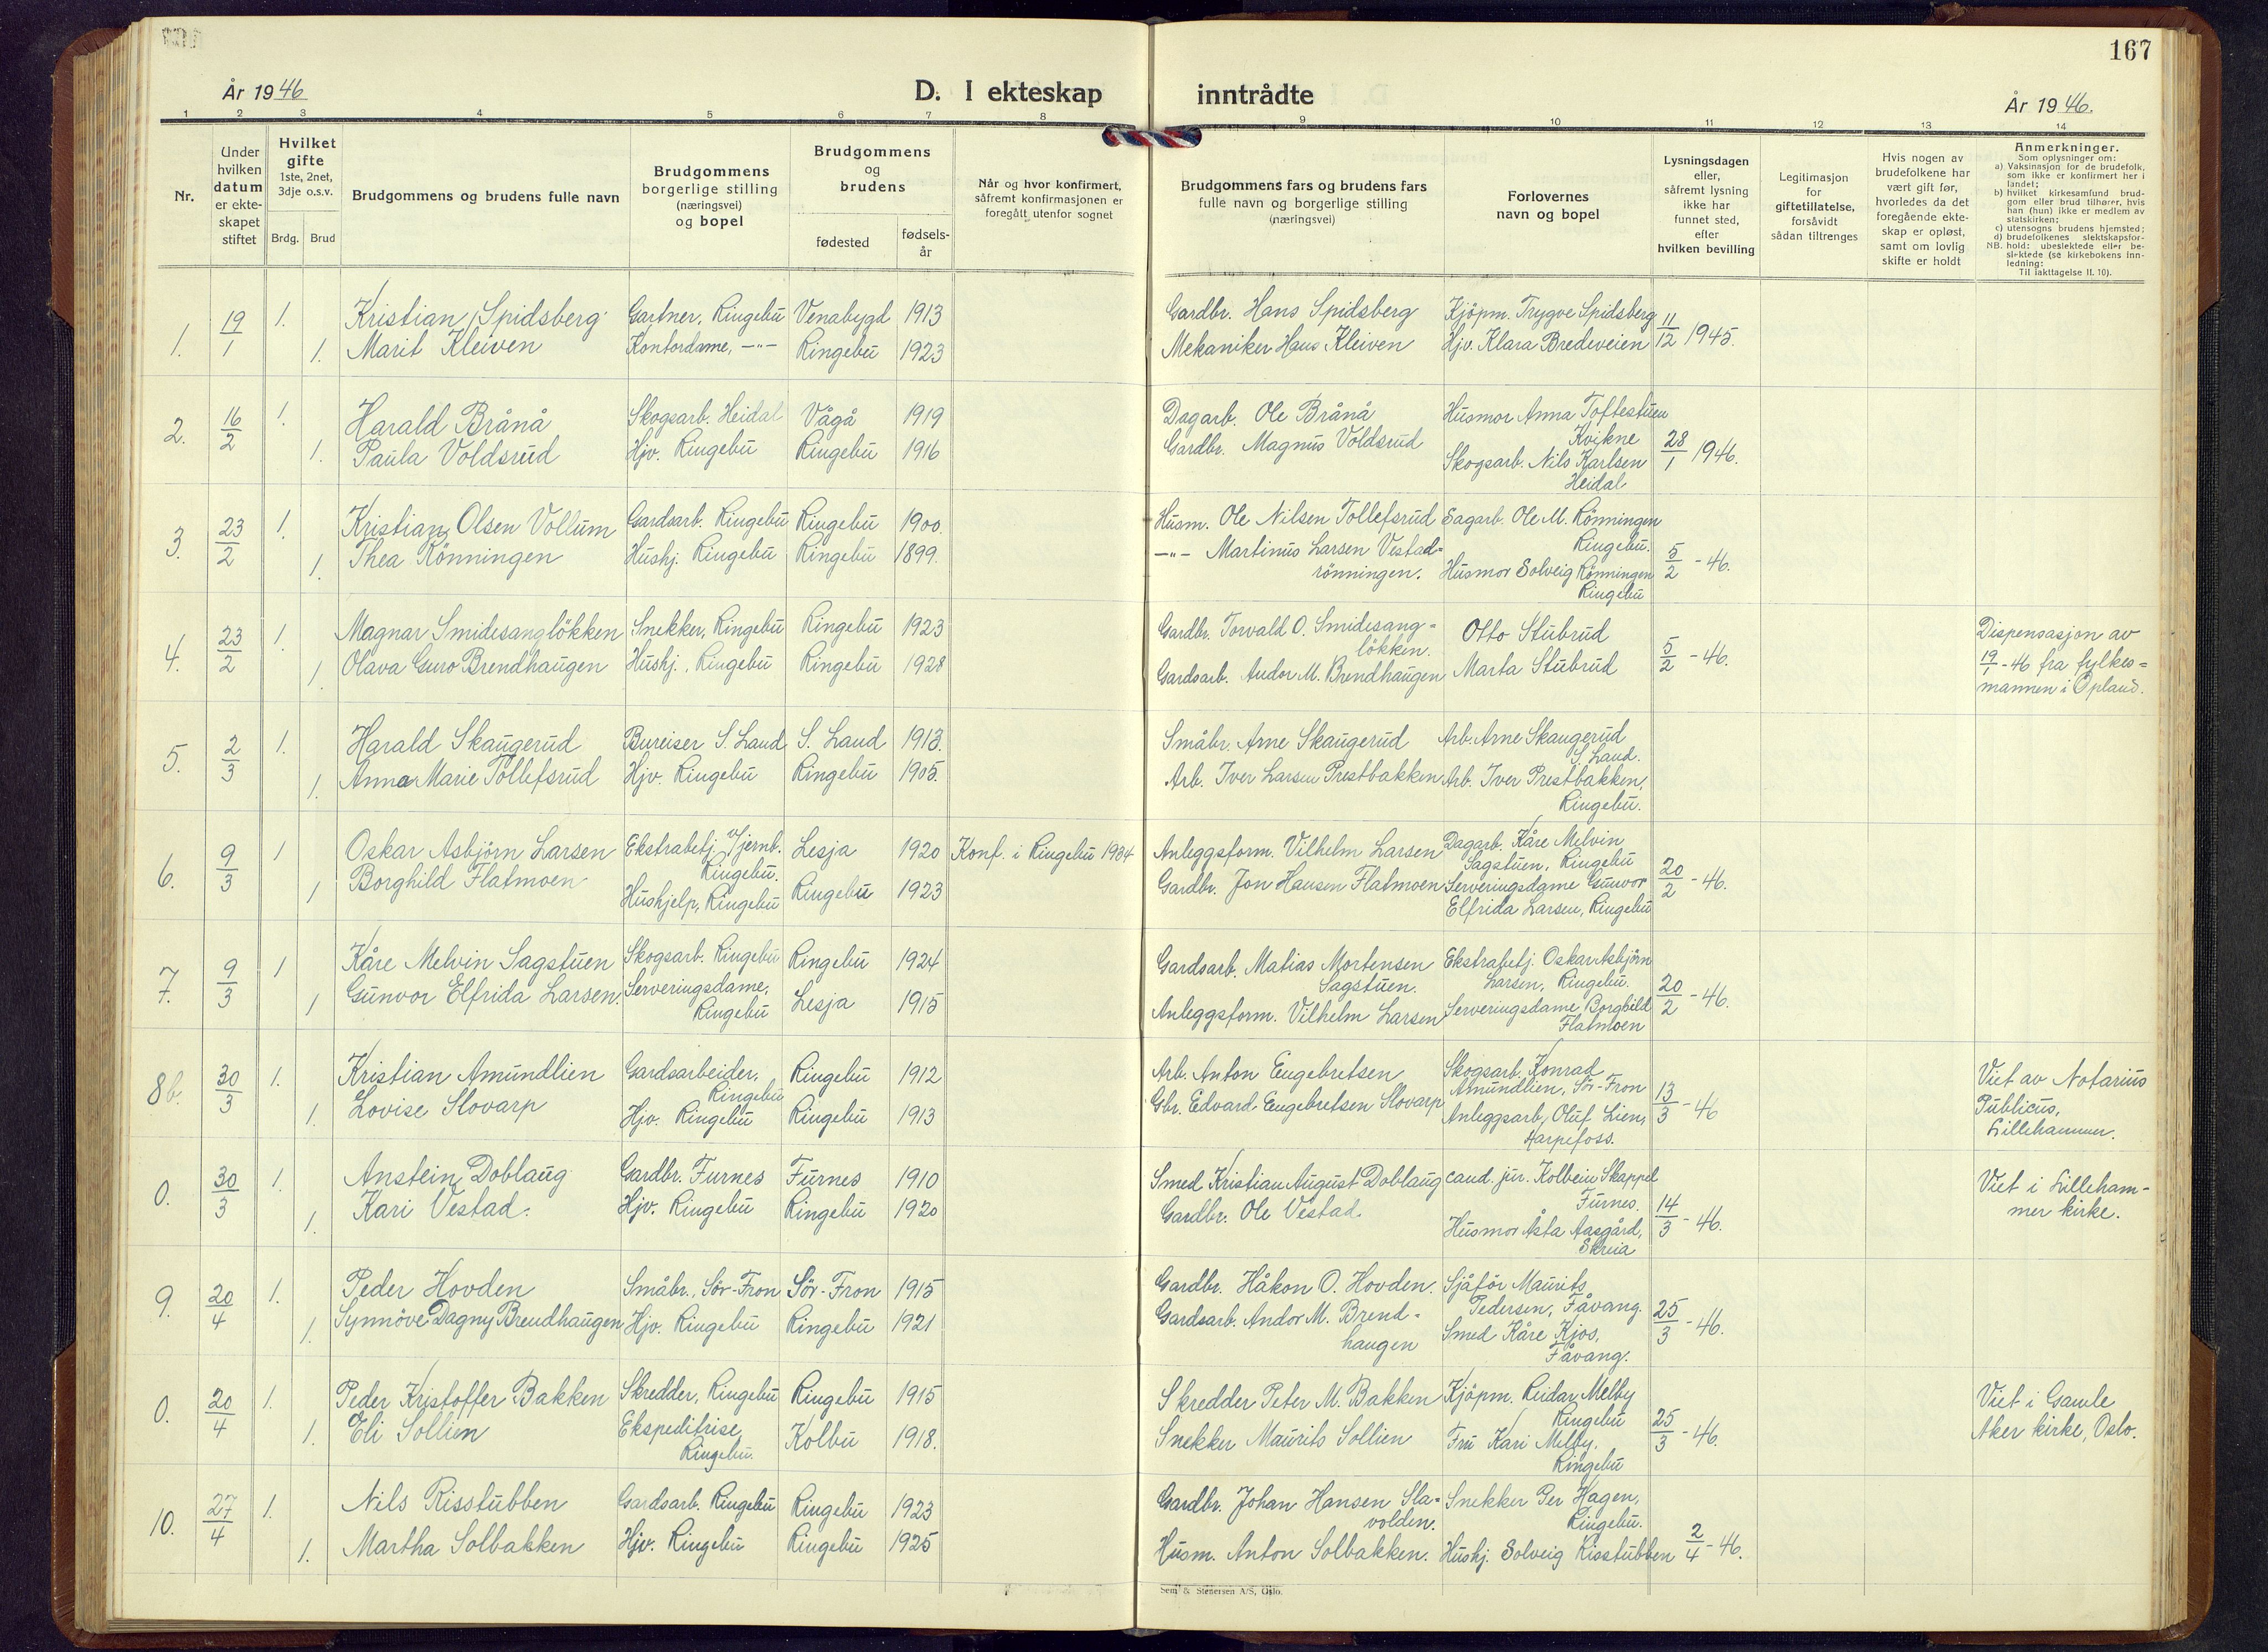 167
År 1946
D. I ekteskap inntrådte
År 1946.
1 2 3 4 5 6 7 8 9 10 11 12 13 14
Nr.
Under hvilken datum er ekteskapet stiftet
Hvilket gifte 1ste, 2net, 3dje o.s.v.
Brdg. Brud
Brudgommens og brudens fulle navn
Brudgommens borgerlige stilling (næringsvei) og bopel
Brudgommens og brudens
fødested
fødselsår
Når og hvor konfirmert, såfremt konfirmasjonen er foregått utenfor sognet
Brudgommens fars og brudens fars fulle navn og borgerlige stilling (næringsvei)
Forlovernes navn og bopel
Lysningsdagen eller, såfremt lysning ikke har funnet sted, efter hvilken bevilling
Legitimasjon for giftetillatelse, forsåvidt sådan tiltrenges
Hvis nogen av brudefolkene har vært gift før, hvorledes da det foregående ekteskap er opløst, samt om lovlig skifte er holdt
Anmerkninger.
Som oplysninger om:
a) Vaksinasjon for de brudefolk, som ikke er konfirmert her i landet;
b) hvilket kirkesamfund brudgom eller brud tilhører, hvis han (hun) ikke er medlem av statskirken;
c) utensogns brudens hjemsted;
d) brudefolkenes slektskapsforhold: ubeslektede eller beslektede (se kirkebokens innledning:
NB.
Til iakttagelse II. 10).
1. 19/1 1. Kristian Spidsberg Gartner, Ringebu Venabygd 1913 Gardbr. Hans Spidsberg Kjöpm. Trygve Spidsberg 11/12 1945.
1. Marit Kleiven Kontordame, -"- Ringebu 1923 Mekaniker Hans Kleiven Hjv. Klara Bredeveien
2. 16/2 1. Harald Brånå Skogsarb. Heidal Vågå 1919 Dagarb. Ole Brånå Husmor Anna Toftestuen
Kvikne 28/1 1946.
1. Paula Voldsrud Hjv. Ringebu Ringebu 1916 Gardbr. Magnus Voldsrud Skogsarb. Nils Karlsen
Heidal
3. 23/2 1. Kristian Olsen Vollum Gardsarb. Ringebu Ringebu 1900. Husm. Ole Nilsen Tollefsrud Sagarb. Ole M. Rönningen
Ringebu. 5/2 - 46.
1. Thea Rönningen Hushj. Ringebu Ringebu 1899. -"- Martinus Larsen Vestad=
rönningen. Husmor Solveig Rönningen
Ringebu
4. 23/2 1. Magnar Smidesanglökken Snekker, Ringebu Ringebu 1923 Gardbr. Torvald O. Smidesang=
lökken. Otto Stubrud 5/2 - 46. Dispensasjon av
19/1 - 46 fra fylkes=
mannen i Opland.
1. Olava Guro Brendhaugen Hushj., Ringebu Ringebu 1928 Gardsarb. Andor M. Brendhaugen Marta Stubrud
5. 2/3 1. Harald Skaugerud Bureiser S. Land S. Land 1913. Småbr. Arne Skaugerud Arb. Arne Skaugerud
S. Land.
1. Anna Marie Tollefsrud Hjv. Ringebu Ringebu 1905. Arb. Iver Larsen Prestbakken Arb. Iver Prestbakken,
Ringebu.
6. 9/3 1 Oskar Asbjörn Larsen Ekstrabetj. v/jernb.
Ringebu. Lesja 1920 Konf. i Ringebu 1934 Anleggsform. Vilhelm Larsen Dagarb. Kåre Melvin
Sagstuen, Ringebu 20/2 - 46.
1 Borghild Flatmoen Hushjelp, Ringebu Ringebu 1923 Gardbr. Jon Hansen Flatmoen Serveringsdame Gunvor
Elfrida Larsen, Ringebu
7. 9/3 1 Kåre Melvin Sagstuen Skogsarb. Ringebu Ringebu 1924 Gardsarb. Matias Mortensen
Sagstuen. Ekstrabetj. Oskar Asbjörn
Larsen, Ringebu. 20/2 - 46.
1 Gunvor Elfrida Larsen. Serveringsdame,
Ringebu Lesja 1915 Anleggsform. Vilhelm Larsen Serveringsdame Borghild
Flatmoen
8b. 30/3 1. Kristian Amundlien Gardsarbeider,
Ringebu Ringebu 1912 Arb. Anton Engebretsen Skogsarb. Konrad
Amundlien, Sör-Fron 13/3 - 46 Viet av Notarius
Publicus,
Lillehammer.
1. Lovise Slovarp Hjv. Ringebu Ringebu 1913 Gbr. Edvard Engebretsen Slovarp Anleggsarb. Oluf Lien,
Harpefoss.
0. 30/3 1. Anstein Doblaug Gardbr. Furnes Furnes 1910 Smed Kristian August Doblaug cand. jur. Kolbein Skappel
Furnes. 14/3 - 46. Viet i Lilleham-
mer kirke.
1. Kari Vestad. Hjv. Ringebu Ringebu 1920 Gardbr. Ole Vestad. Husmor Åsta Aasgård,
Skreia
9. 20/4 1. Peder Hovden Småbr., Sör-Fron Sör-Fron 1915 Gardbr. Håkon O. Hovden. Sjåför Maurits
Pedersen, Fåvang. 25/3 - 46.
1. Synnöve Dagny Brendhaugen Hjv. Ringebu Ringebu 1921 Gardsarb. Andor M. Brend=
haugen Smed Kåre Kjos,
Fåvang.
0. 20/4 1. Peder Kristoffer Bakken Skredder, Ringebu Ringebu 1915 Skredder Peter M. Bakken Kjöpm. Reidar Melby
Ringebu 25/3 - 46. Viet i Gamle
Aker kirke, Oslo.
1. Eli Sollien Ekspeditrise,
Ringebu. Kolbu 1918. Snekker Maurits Sollien Fru Kari Melby,
Ringebu
10. 27/4 1. Nils Risstubben Gardsarb. Ringebu Ringebu 1923 Gardbr. Johan Hansen Sla=
volden. Snekker Per Hagen,
Ringebu. 2/4 - 46.
1. Martha Solbakken Hjv. Ringebu Ringebu 1925 Husm. Anton Solbakken. Hushj. Solveig Risstubben
Sem & Stenersen A/S, Oslo.